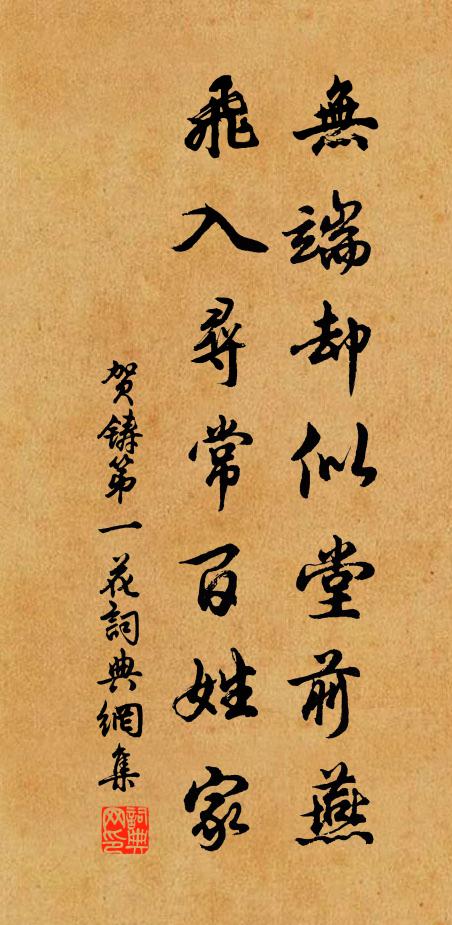 無端却似堂前燕
飛入尋常百姓家
贺鑄第一花詞典網集
詞典
网印